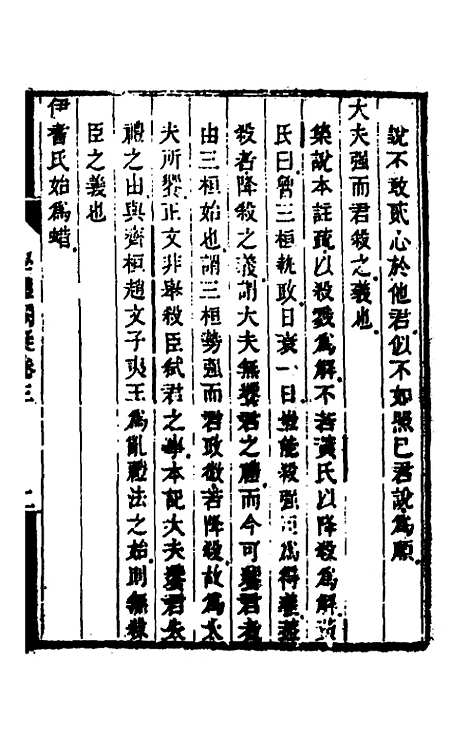 說不敢貳心於他君似不如照已君說爲順
大夫强而君殺之義也
集說本註疏以殺戮爲解不若黃氏以降殺爲解黃
氏曰魯三桓執政日衰一日豈能殺强臣爲得義蓋
殺者降殺之義謂大夫無饗君之禮而今可饗君者
由三桓始也謂三桓勢强而君政微若降殺故爲大
夫所饗正文非舉殺臣弑君之事本記大夫饗君失
禮之由與齊桓趙文子夷王爲亂禮法之始則無殺
臣之義也
伊耆氏始爲蜡
卷三